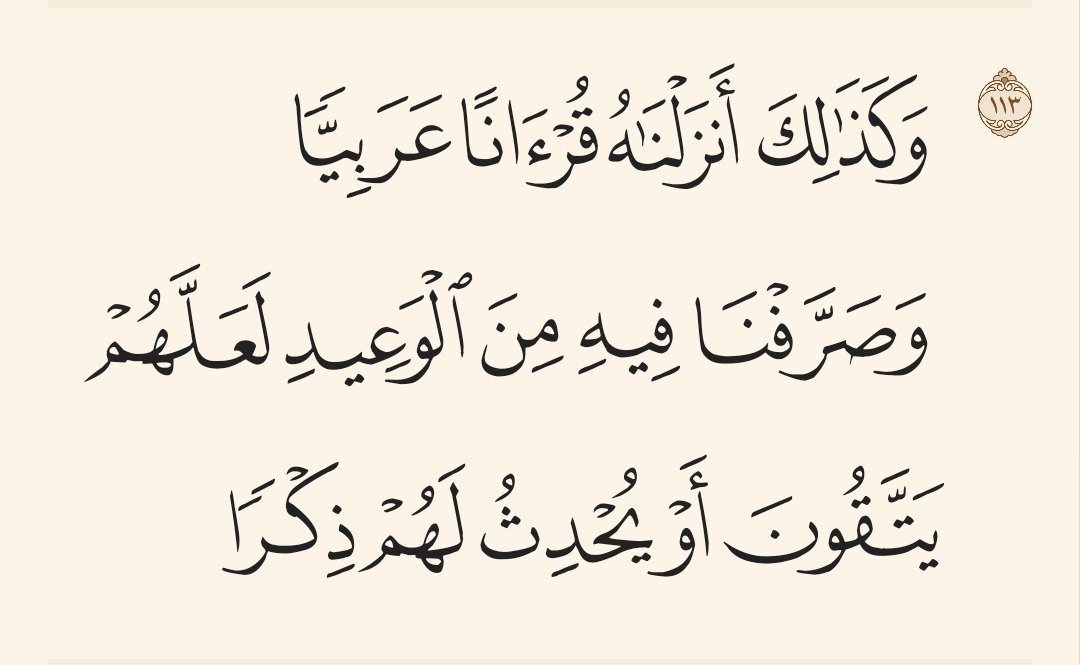 ١١٣
وَكَذَٰلِكَ أَنزَلْنَٰهُ قُرْءَانًا عَرَبِيًّا
وَصَرَّفْنَا فِيهِ مِنَ ٱلْوَعِيدِ لَعَلَّهُمْ
يَتَّقُونَ أَوْ يُحْدِثُ لَهُمْ ذِكْرًا